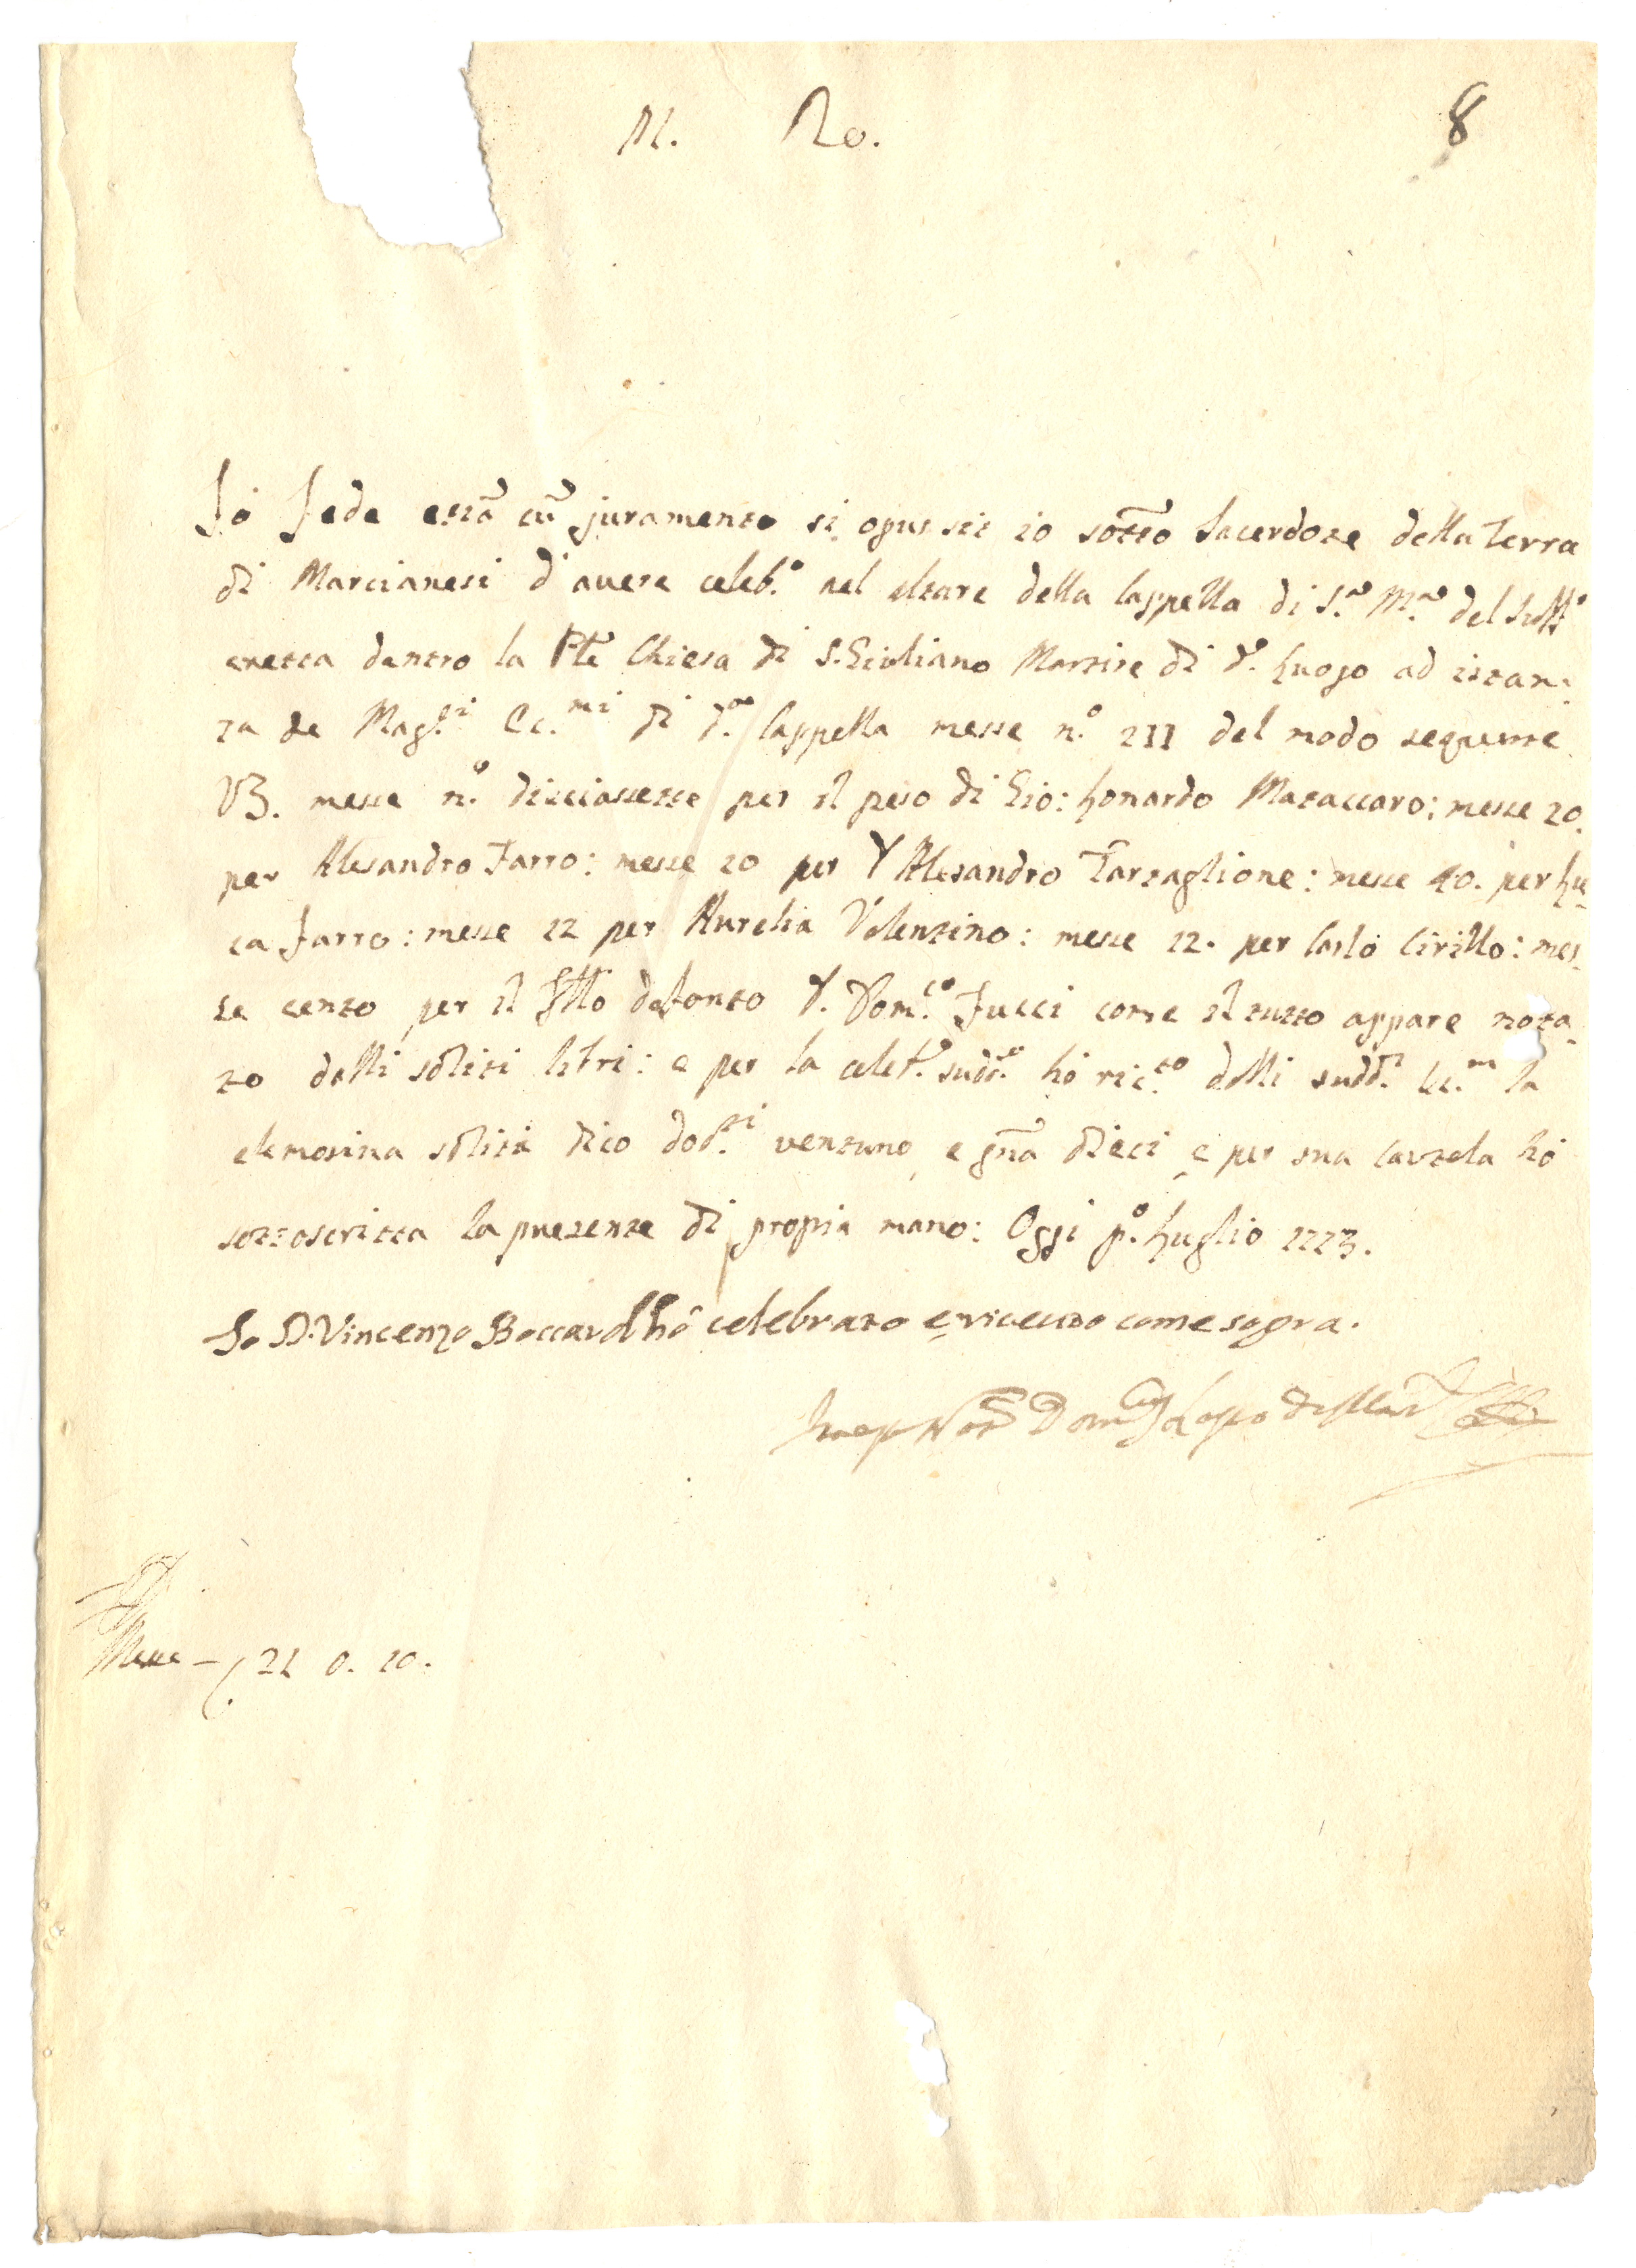 N. 20. 8
Fò fede etiã cũ juramento si opus sit io sottõ Sacerdote della Terra
di Marcianesi d'avere celeb.º nel altare della Cappella di S.ª M.ª del
eretta dentro la Chiesa di S. Giuliano Martire di d.º Luogo ad istan=
za de Mag.ci Ec.mi di d.ª Cappella messe n.º 211 del modo sequente
V3. messe n.º diciassette per il peso di Gio: Lonardo Mataccaro; messe 20.
per Alesandro Farro: messe 20 per Alesandro Tartaglione: messe 40. per Lu=
ca Farro: messe 12 per Aurelia Valentino: messe 12. per Carlo Cirillo: mes=
se cento per il defonto D. Dom.co Fucci come il tutto appare nota=
to dalli soliti libri: e per la celeb.e sudd.a hò ric.to dalli sudd.i Ec.mi la
elemosina solita dico doc.ti ventuno, e gñа dieci e per sua cautela hò
sottoscritta la presente di propia mano: Oggi p.º Luglio 1723.
Io D. Vincenzo Boccard hò celebrato e ricevuto come sopra.
Not Dom.cus
Messe – 21 0. 10.